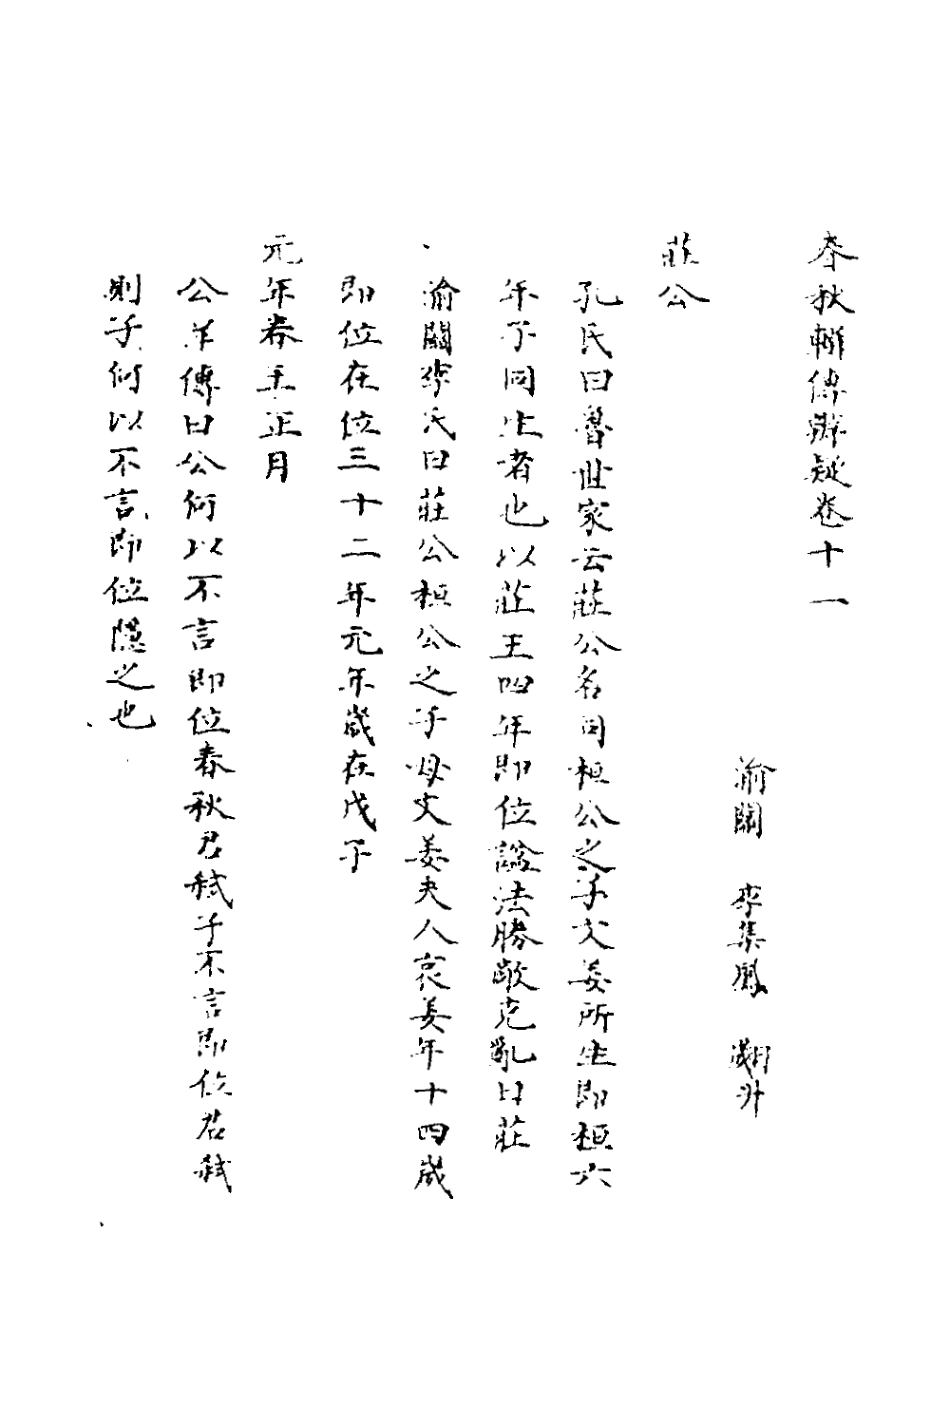 春秋輯傳辨疑卷十一
渝關 李集鳳 翽升
莊公
孔氏曰魯世家云莊公名同桓公之子文姜所生即桓六
年子同生者也以莊王四年即位謚法勝敵克亂曰莊
渝關李氏曰莊公桓公之子母文姜夫人哀姜年十四歲
即位在位三十二年元年歲在戊子
元年春王正月
公羊傳曰公何以不言即位春秋君弒子不言即位君弒
則子何以不言即位隱之也